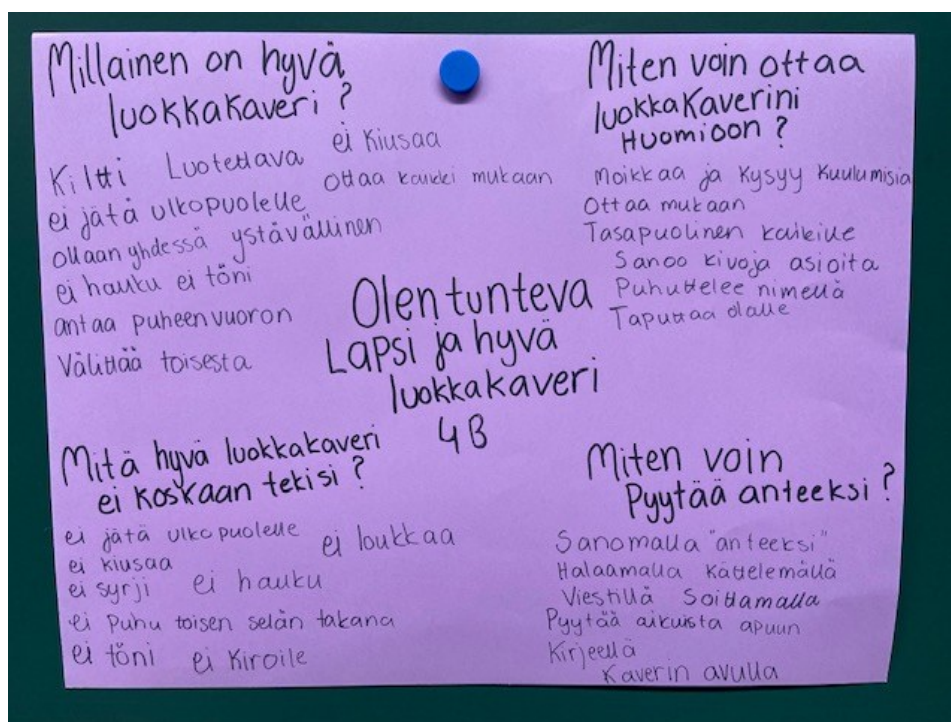 Millainen on hyvä
luokkakaveri?
Kiltti Luotettava ei kiusaa
ei jätä ulkopuolelle ottaa kaikki mukaan
ollaan yhdessä ystävällinen
ei hauku ei töni
antaa puheenvuoron
Välittää toisesta
Miten voin ottaa
luokkakaverini
Huomioon?
Moikkaa ja kysyy kuulumisia
Ottaa mukaan
Tasapuolinen kaikille
Sanoo kivoja asioita
Puhuttelee nimellä
Taputtaa olalle
Olen tunteva
Lapsi ja hyvä
luokkakaveri
4B
Mitä hyvä luokkakaveri
ei koskaan tekisi?
ei jätä ulkopuolelle ei loukkaa
ei kiusaa
ei syrji ei hauku
ei puhu toisen selän takana
ei töni ei kiroile
Miten voin
Pyytää anteeksi?
Sanomalla "anteeksi"
Halaamalla kättelemällä
Viestillä Soittamalla
Pyytää aikuista apuun
Kirjeellä
Kaverin avulla